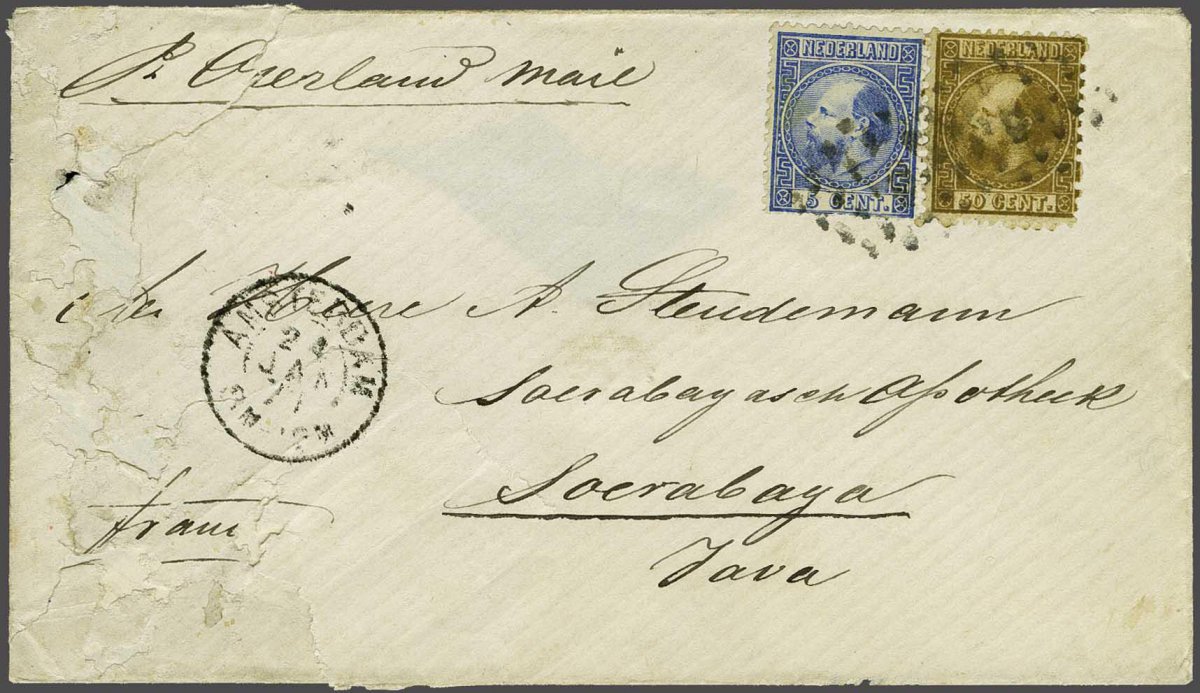 Pr Overland Mail
NEDERLAND
5 CENT.
NEDERLAND
50 CENT.
de Heere A. Steudemann
Soerabayasch Apotheek
Soerabaya
Java
AMSTERDAM
24
JAN
71
franco